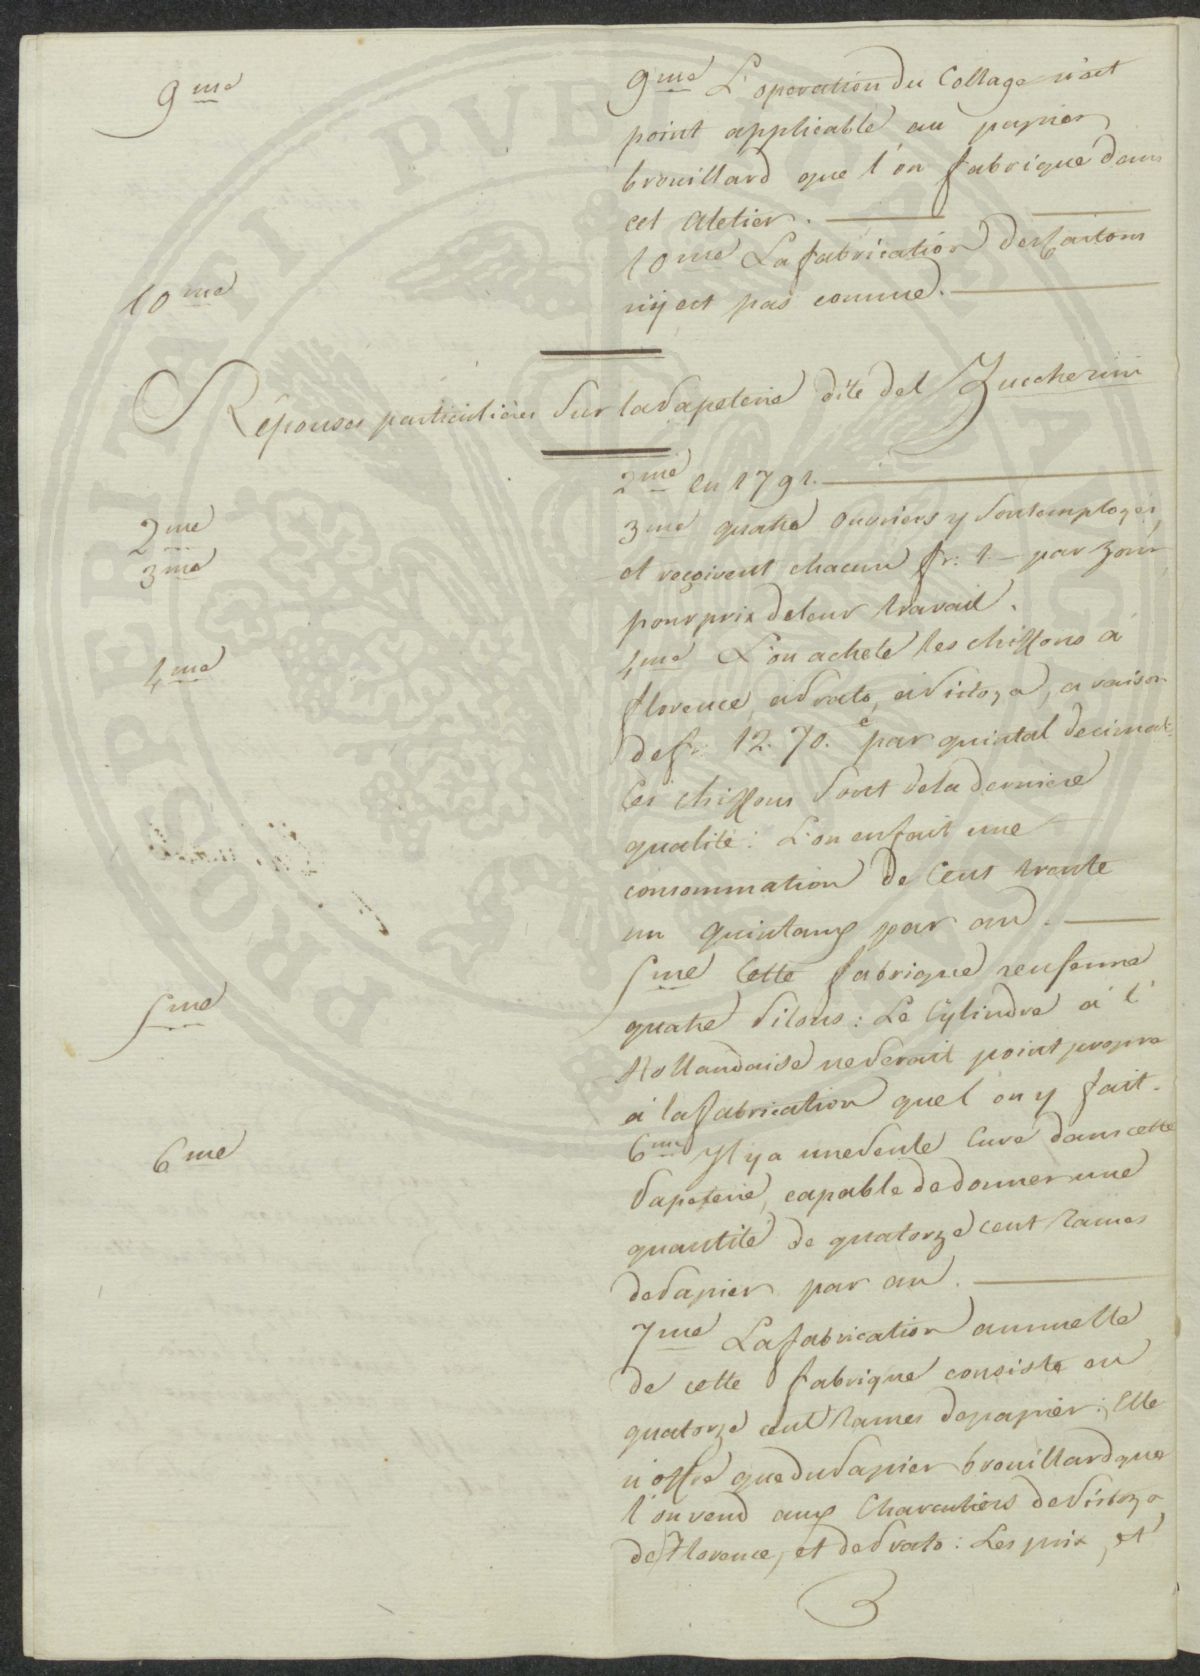 9me
9me L'operation du Collage n'est
point applicable au papier
brouillard que l'on fabrique dans
cet Atelier.
10me
10me La fabrication des Cartons
n'y est pas connue.
Réponses particulières sur la Papeterie dite del Zuccherini
2me
2me en 1791.
3me
3me quatre ouvriers y sont employés,
et reçoivent chacun fr: 1 — par jour
pour prix de leur travail.
4me
4me L'on achete les chiffons à
florence, à Prato, à Pistoza, a raison
de fr: 12. 70.c par quintal decimal.
Ces chiffons sont de la derniere
qualité: L'on en fait une
consommation de Cent trente
un quintaux par an.
5me
5me Cette fabrique renferme
quatre Pilons: Le Cylindre à l'
Hollandaise ne serait point propre
à la fabrication que l'on y fait.
6me
6me Il y a une seule Cuve dans cette
Papeterie, capable de donner une
quantité de quatorze cent Rames
de Papier par an.
7me La fabrication annuelle
de cette fabrique consiste en
quatorze cent Rames de papier: Elle
n'offre que du Papier brouillard que
l'on vend aux Charcutiers de Pistoza
de Florence, et de Prato: Les prix, et
PVBLICAE
PROSPERITATI